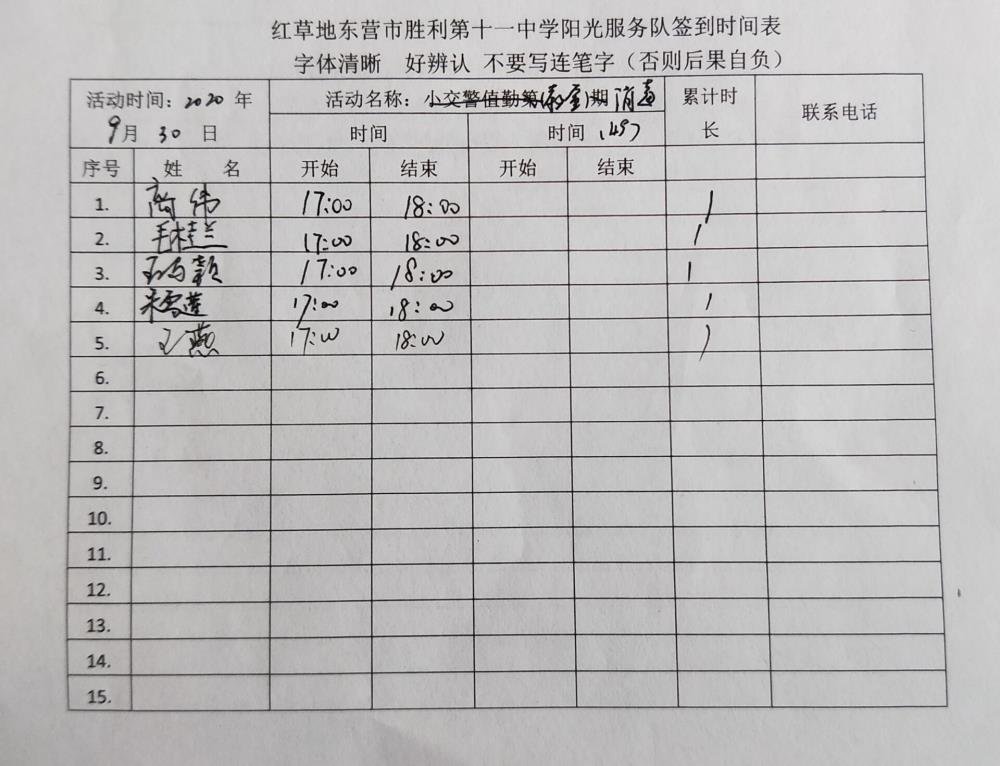 红草地东营市胜利第十一中学阳光服务队签到时间表
字体清晰 好辨认 不要写连笔字（否则后果自负）
活动时间：2020 年 9月 30 日 活动名称：小交警值勤第(教室)期 消毒 累计时长 联系电话
时间 时间 (49)
序号 姓 名 开始 结束 开始 结束
1. 高伟 17:00 18:00 1
2. 毛桂兰 17:00 18:00 1
3. 17:00 18:00 1
4. 朱雪莲 17:00 18:00 1
5. 王燕 17:00 18:00 1
6.
7.
8.
9.
10.
11.
12.
13.
14.
15.